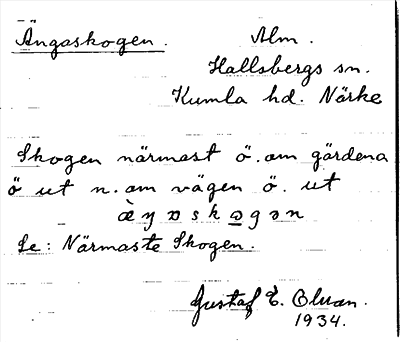 Ängaskogen. Alm.
Hallsbergs sn.
Kumla hd. Närke
Skogen närmast ö. om gärdena
ö ut n. om vägen ö. ut
Se: Närmaste Skogen.
Gustaf E.
1934.